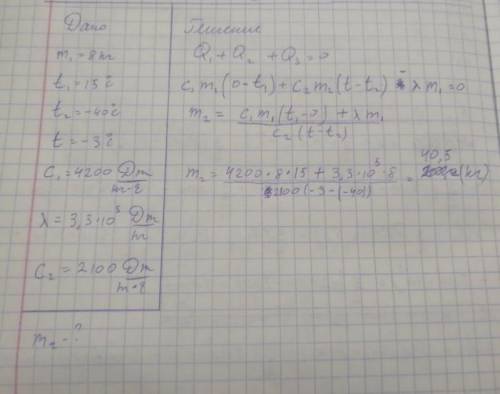 Дано
m₁ = 8 кг
t₁ = 15°C
t₂ = -40°C
t = -3°C
C₁ = 4200 Дж/кг·°C
λ = 3,3·10⁵ Дж/кг
C₂ = 2100 Дж/кг·°C
m₂ - ?
Решение
Q₁ + Q₂ + Q₃ = 0
c₁m₁(0 - t₁) + c₂m₂(t - t₂) - λm₁ = 0
m₂ = c₁m₁(t₁ - 0) + λm₁ / c₂(t - t₂)
m₂ = 4200·8·15 + 3,3·10⁵·8 / 2100(-3-(-40)) = 40,5 (кг)